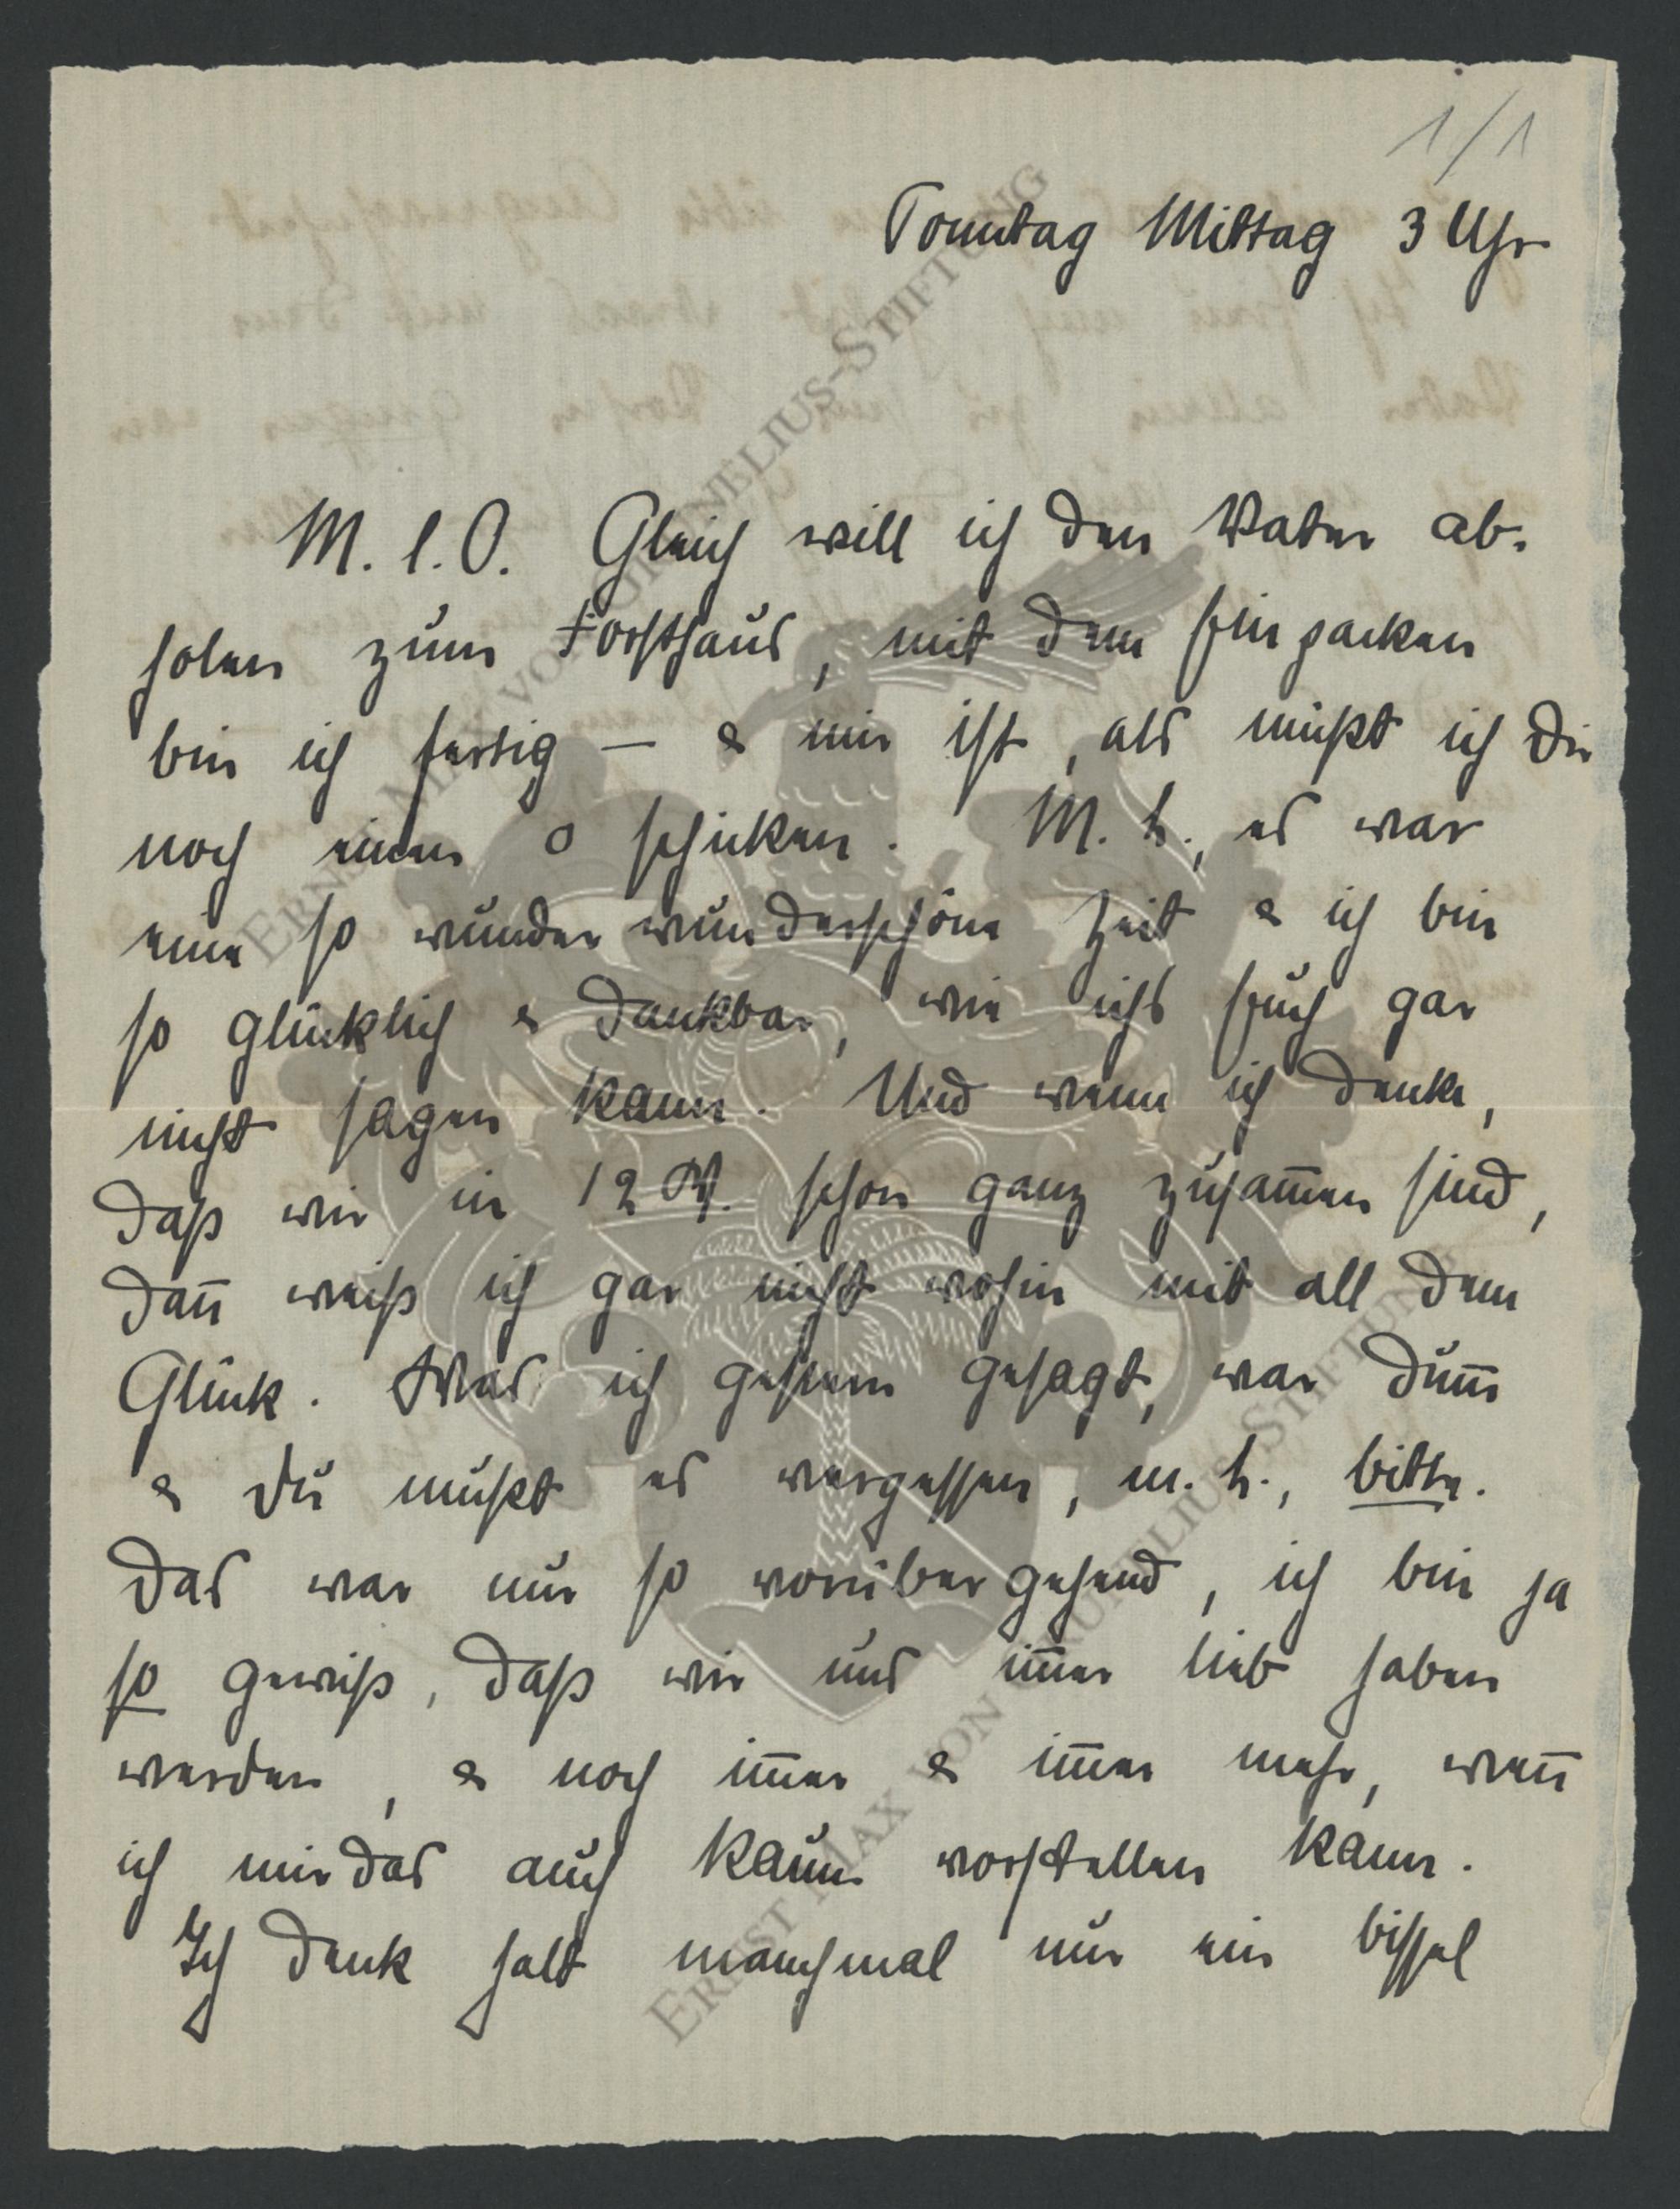 1/1
Sonntag Mittag 3 Uhr
M. l. O. Gleich will ich den Vater ab-
holen zum Forsthaus, mit dem Einpacken
bin ich fertig — & mir ist, als müßt ich Dir
noch einen o schicken. M. h., es war
eine so wunder wunderschöne Zeit & ich bin
so glücklich & dankbar, wie ichs Euch gar
nicht sagen kann. Und wenn ich denke,
daß wir in 12 W. schon ganz zusam̅en sind,
dan̅ weiß ich gar nicht wohin mit all dem
Glück. Was ich gestern gesagt, war dum̅
& Du mußt es vergessen, m. h., bitte.
Das war nur so vorübergehend, ich bin ja
so gewiß, daß wir uns im̅er lieb haben
werden, & noch im̅er & im̅er mehr, wen̅
ich mir das auch kaum vorstellen kann.
Ich denk halt manchmal nur ein bissel
ERNST MAX VON GRUNELIUS-STIFTUNG
ERNST MAX VON GRUNELIUS-STIFTUNG